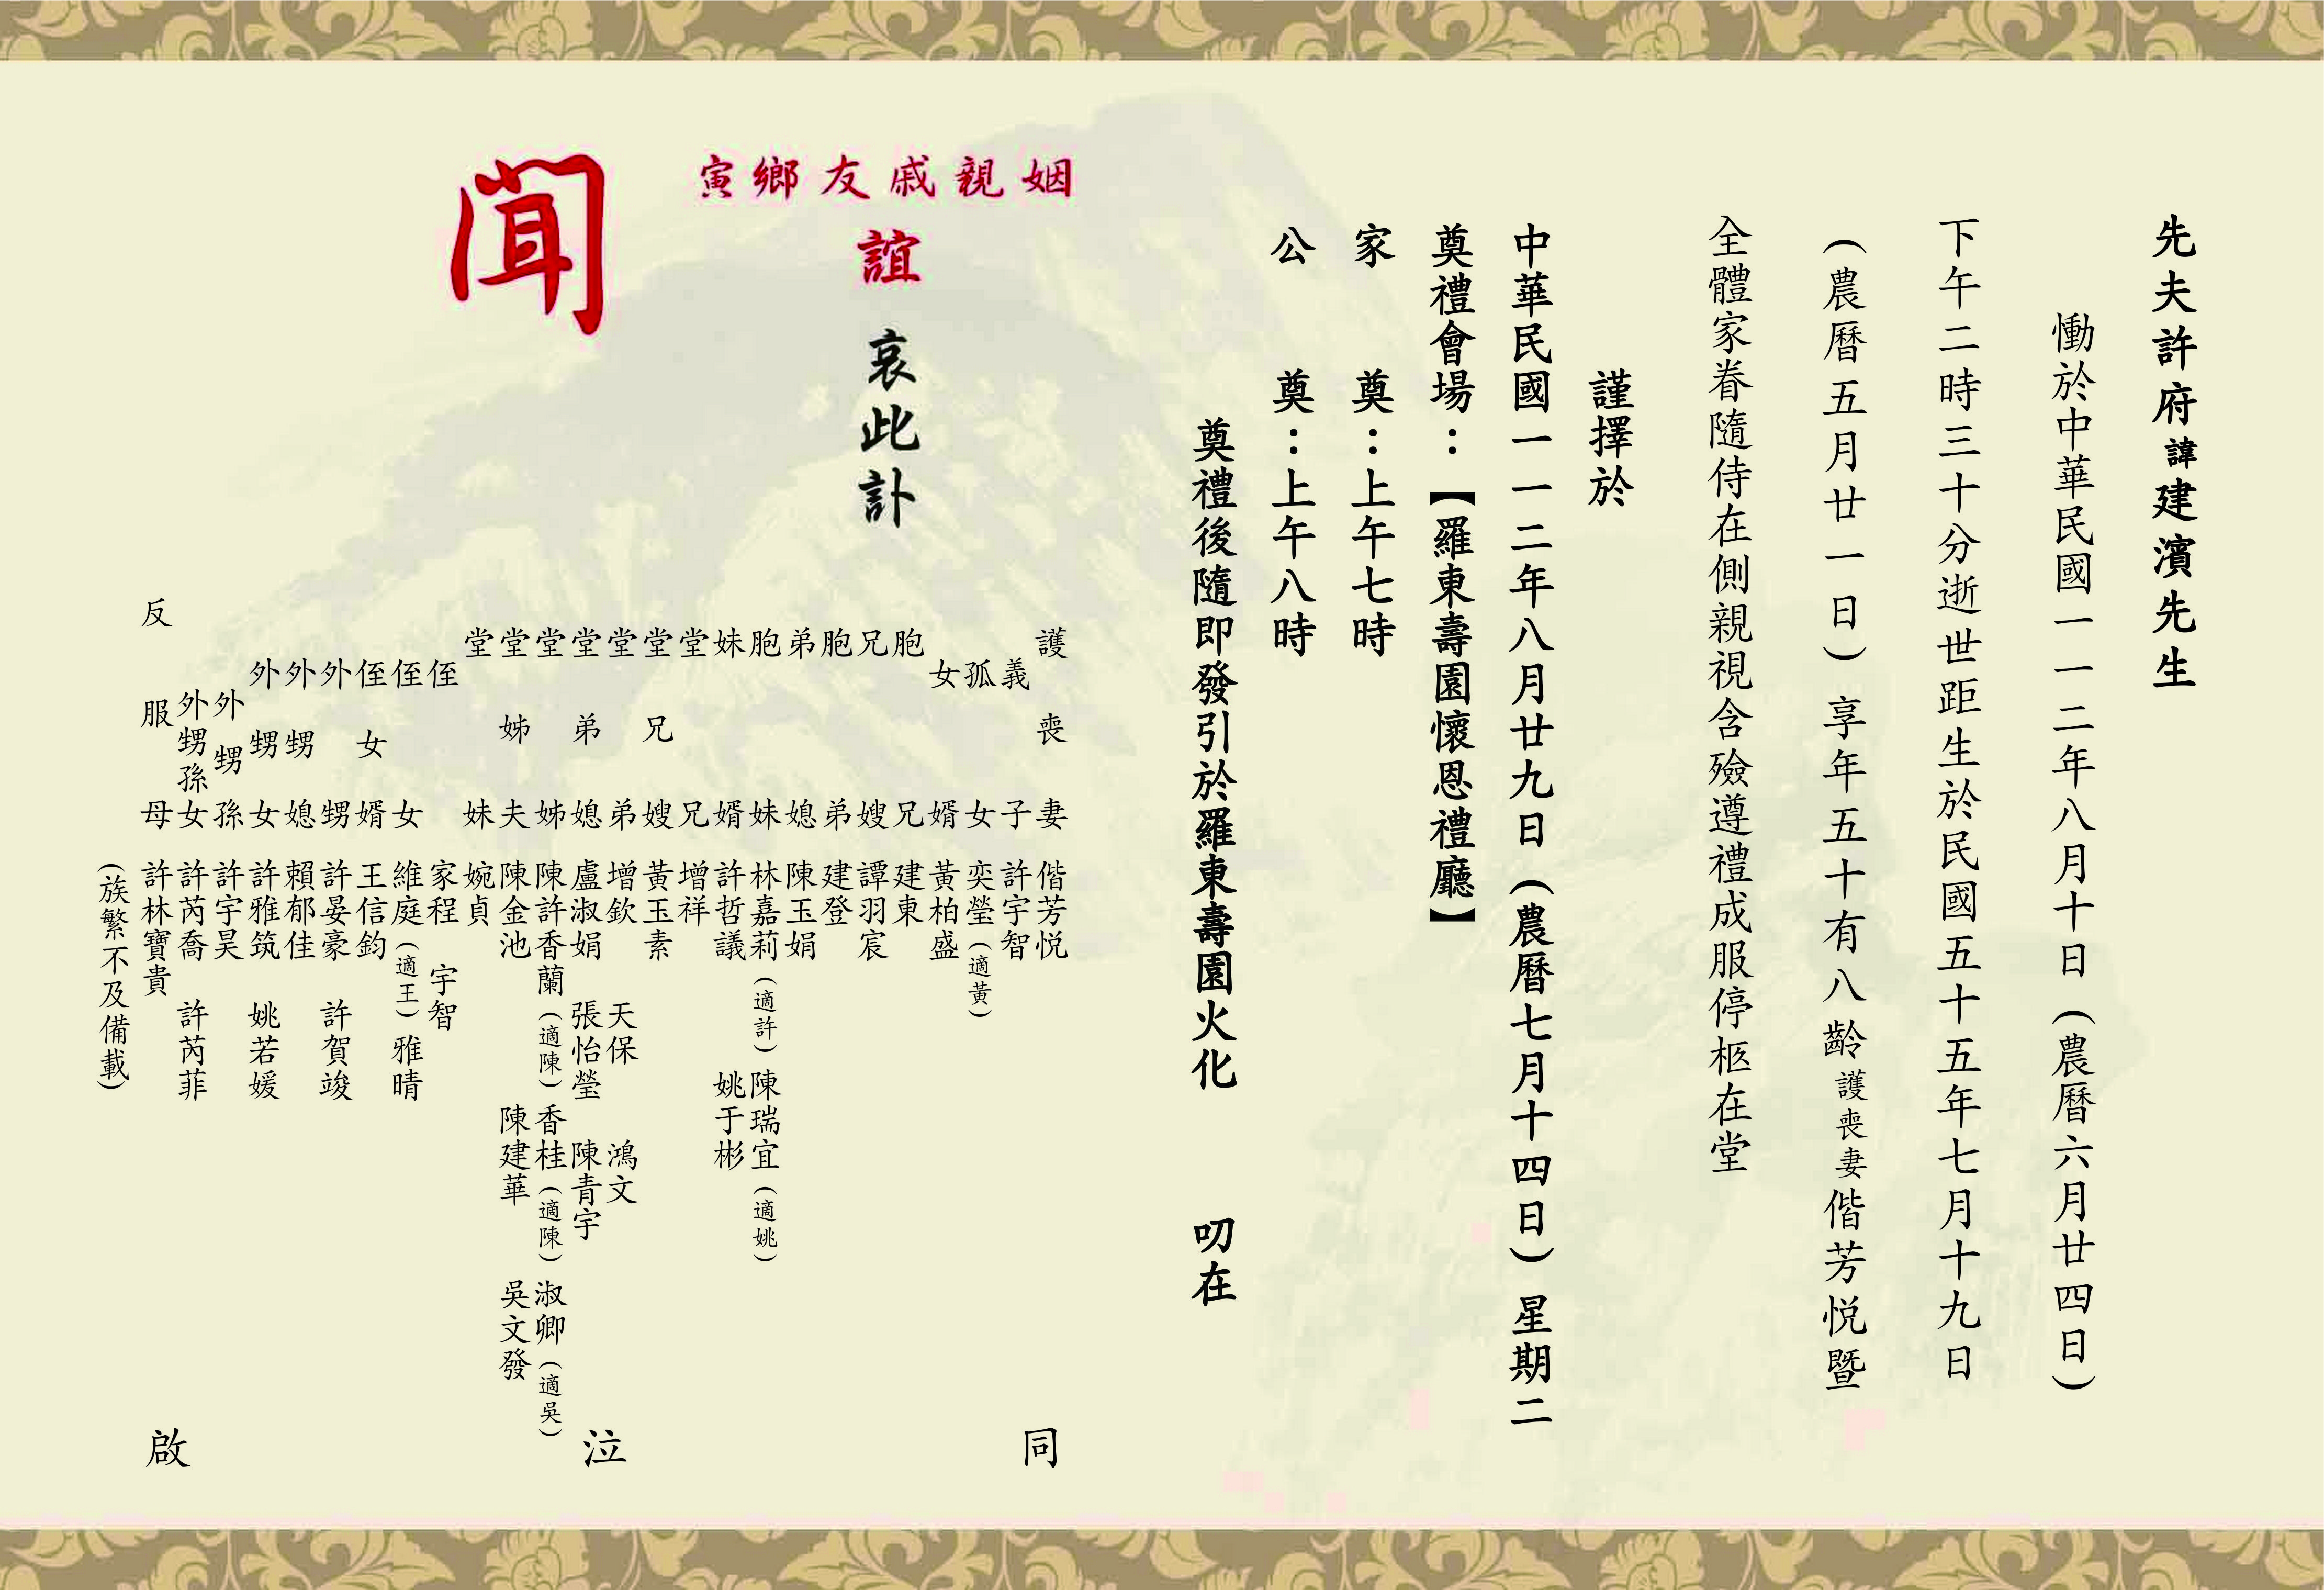 先夫許府諱建濱先生
慟於中華民國一一二年八月十日(農曆六月廿四日)
下午二時三十分逝世距生於民國五十五年七月十九日
(農曆五月廿一日)享年五十有八齡護喪妻偕芳悦暨
全體家眷隨侍在側親視含殮遵禮成服停柩在堂
謹擇於
中華民國一一二年八月廿九日(農曆七月十四日)星期二
奠禮會場：【羅東壽園懷恩禮廳】
家奠：上午七時
公奠：上午八時
奠禮後隨即發引於羅東壽園火化 叨在
姻親戚友鄉寅
誼 哀此訃
聞
護喪妻 偕芳悦
義子 許宇智
孤女 奕瑩(適黃)
女婿 黃柏盛
胞兄 建東
兄嫂 譚羽宸
胞弟 建登
弟媳 陳玉娟
胞妹 林嘉莉(適許) 陳瑞宜(適姚)
妹婿 許哲議 姚于彬
堂兄 增祥
堂兄嫂 黃玉素
堂弟 增欽 天保 鴻文
堂弟媳 盧淑娟 張怡瑩 陳青宇
堂姊 陳許香蘭(適陳) 香桂(適陳) 淑卿(適吳)
堂姊夫 陳金池 陳建華 吳文發
堂妹 婉貞
侄 家程 宇智
侄女 維庭(適王) 雅晴
侄女婿 王信鈞
外甥 許晏豪 許賀竣
外甥媳 賴郁佳
外甥女 許雅筑 姚若媛
外甥孫 許宇昊
外甥孫女 許芮喬 許芮菲
反服母 許林寶貴
(族繁不及備載)
同泣啟